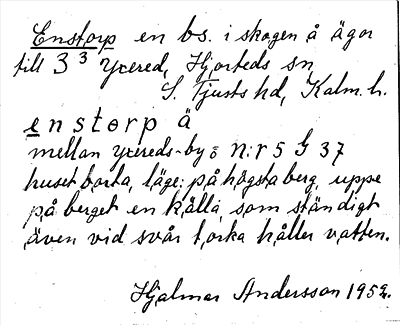 Enstorp en bs. i skogen å ägor
till 3³ Yxered, Hjorteds sn,
S. Tjusts hd, Kalm. l.
enstorp ä
mellan yxereds-by o N:r 5 G 37
huset borta, läge: på högsta berg, uppe
på berget en källa, som ständigt
även vid svår torka håller vatten.
Hjalmar Andersson 1952.